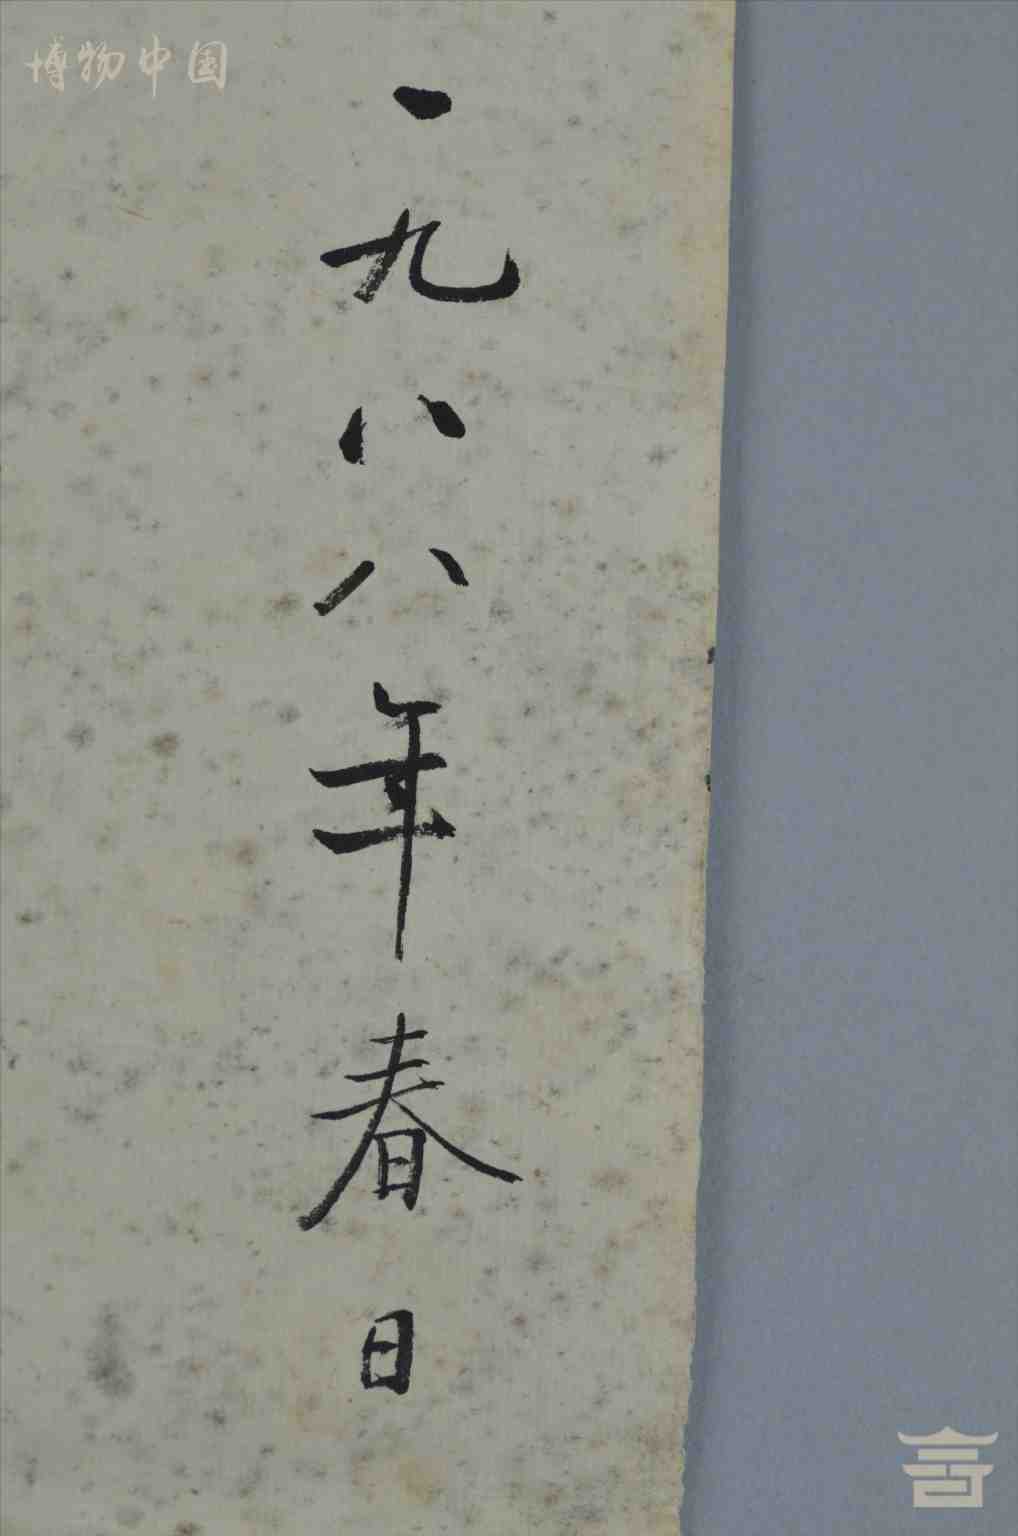 博物中国
一九八八年春日